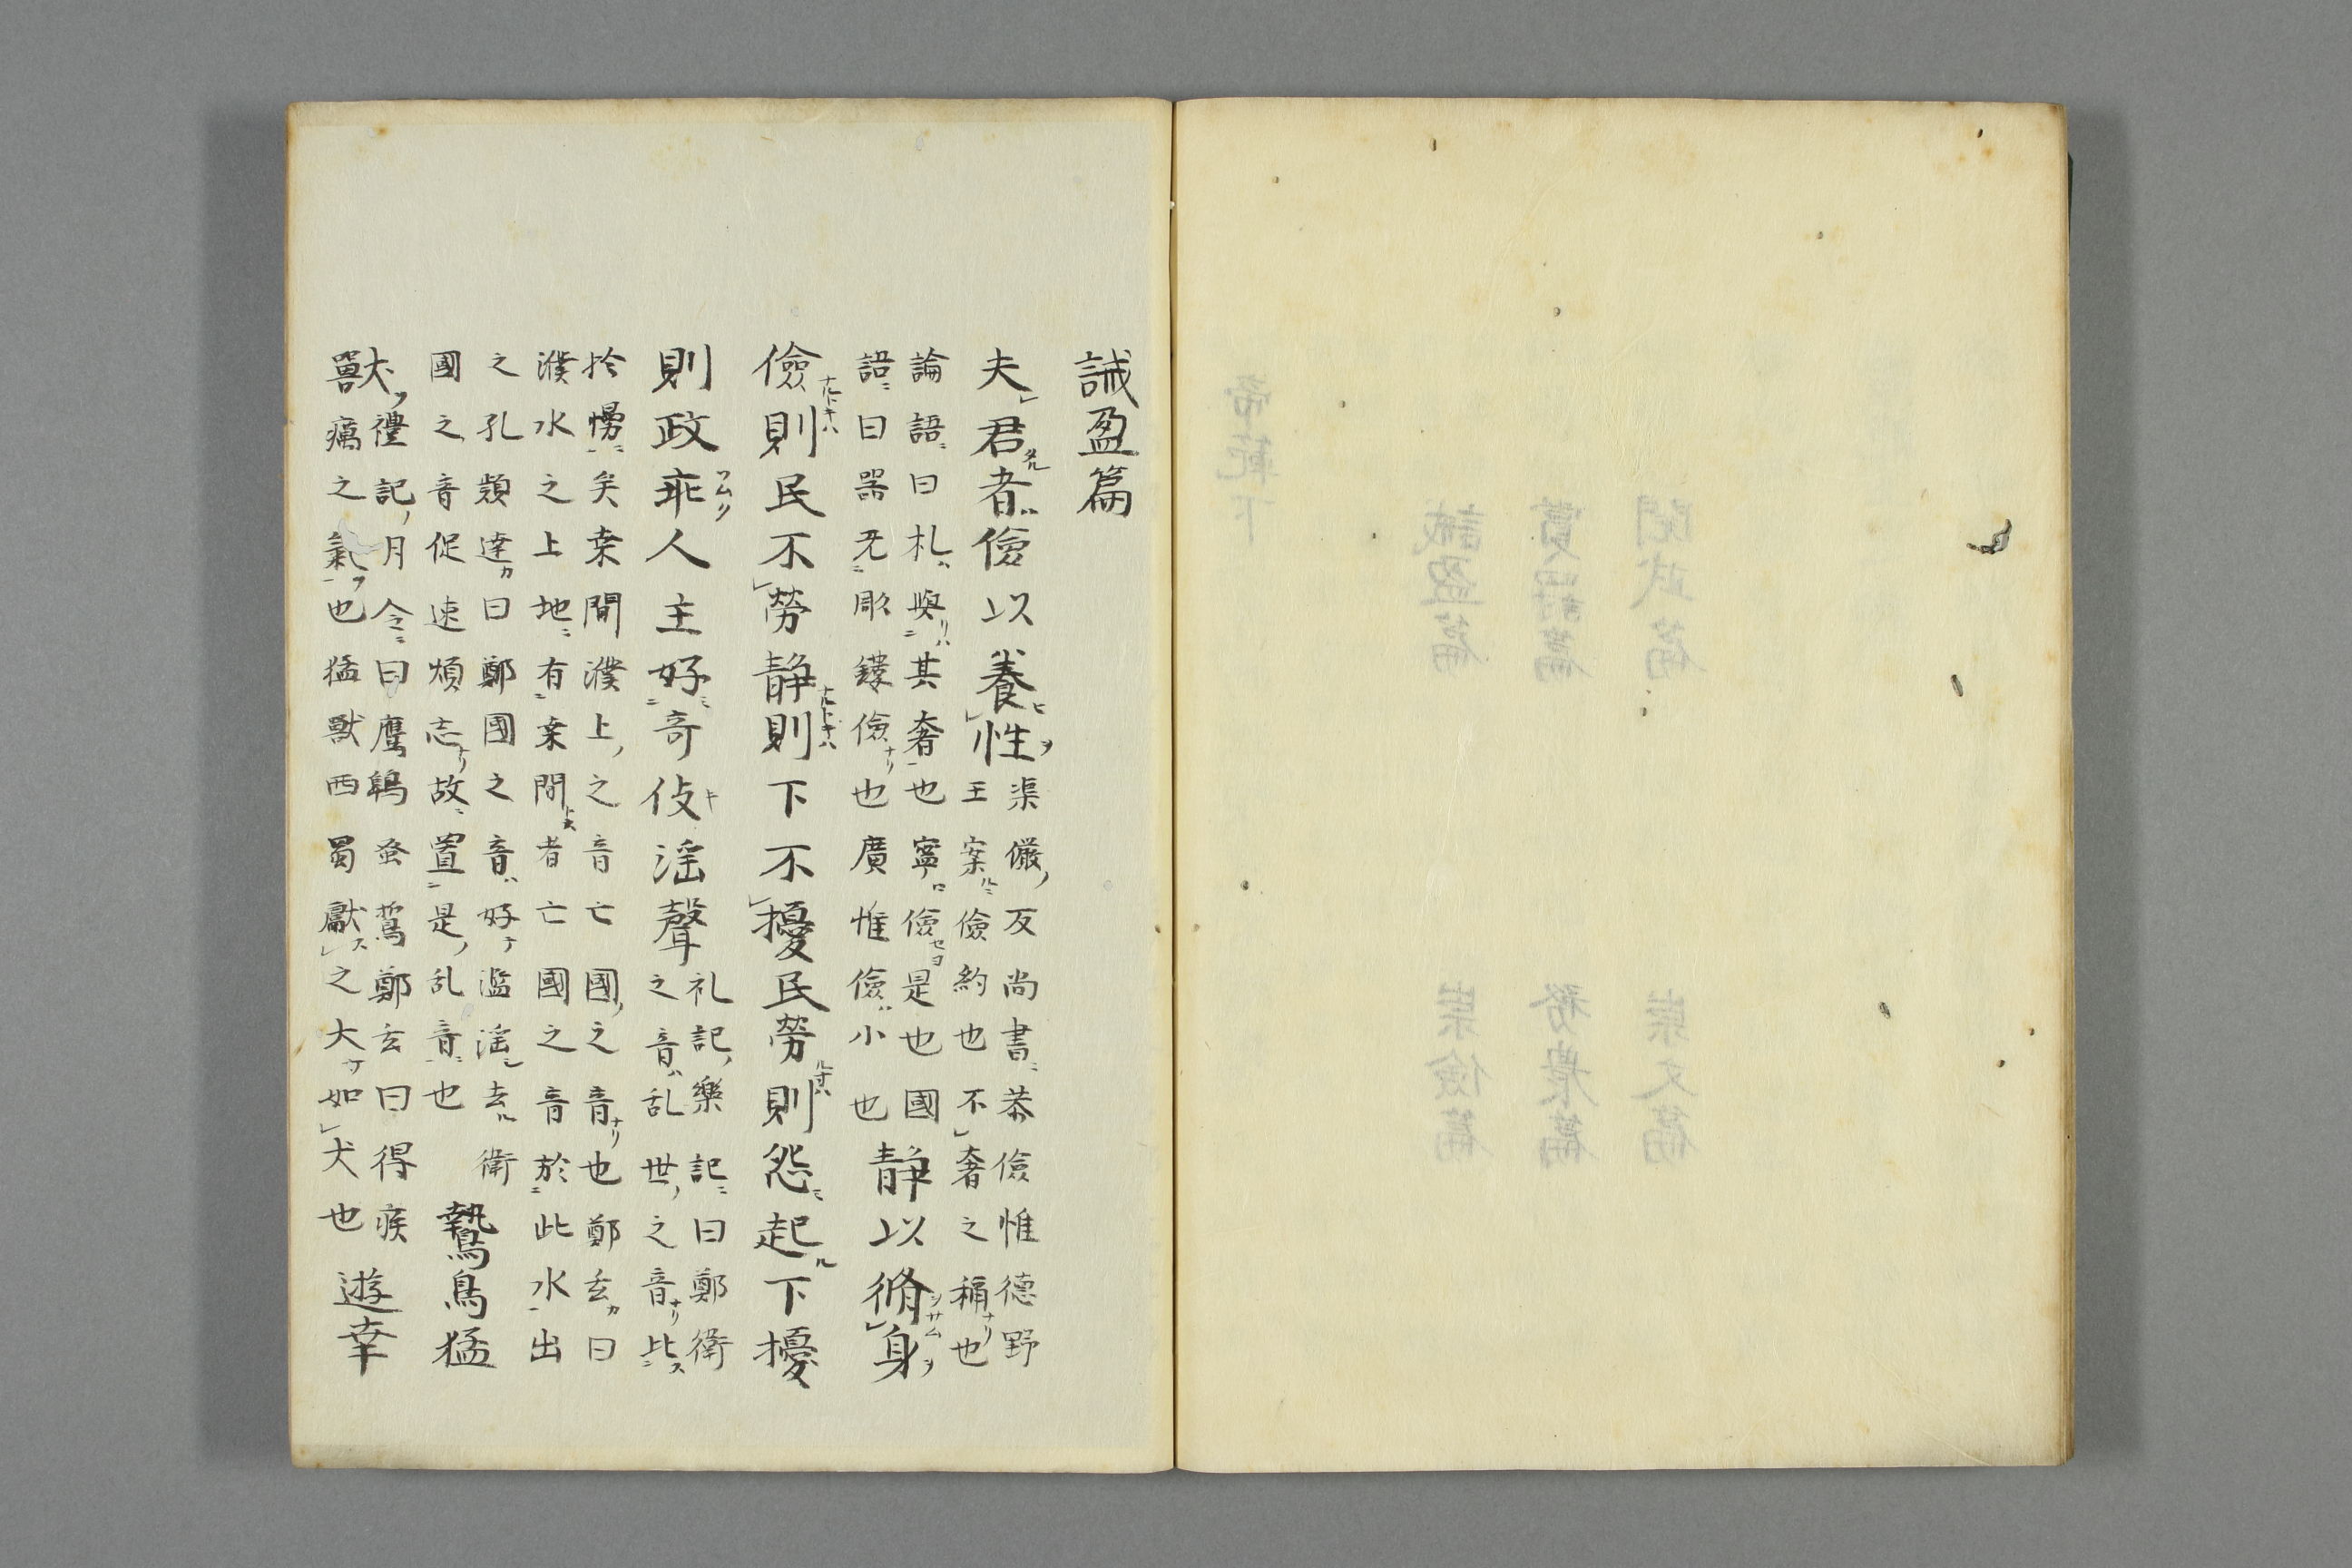 誡盈篇
夫君者儉以養性
渠儼反尚書恭儉惟德野
王案儉約也不奢之稱也
論語曰礼與其奢也寧儉是也國
語曰器无彫鏤儉也廣惟儉小也
靜以脩身
儉則民不勞靜則下不擾民勞則怨起下擾
則政乖人主好奇伎滛聲
礼記樂記曰鄭衛
之音乱世之音比
扵慢矣桒間濮上之音亡國之音也鄭玄曰
濮水之上地有桒間者亡國之音於此水出
之孔穎達曰鄭國之音好濫滛去衛
國之音促速煩志故置是乱音也
鷙鳥猛
獸
禮記月令曰鷹鵻蚤鷙鄭玄曰得疾
癘之氣也猛獸西蜀獻之大如犬也
遊幸